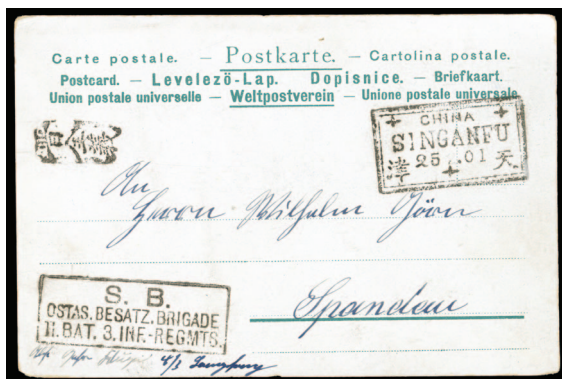 Carte postale. — Postkarte. — Cartolina postale.
Postcard. — Levelezö-Lap. Dopisnice. — Briefkaart.
Union postale universelle — Weltpostverein — Unione postale universale
CHINA
SINGANFU
25 .01
津 天
An
Herrn Wilhelm Görn
Spandau
S. B.
OSTAS. BESATZ. BRIGADE
II. BAT. 3. INF.-REGMTS.
4/3